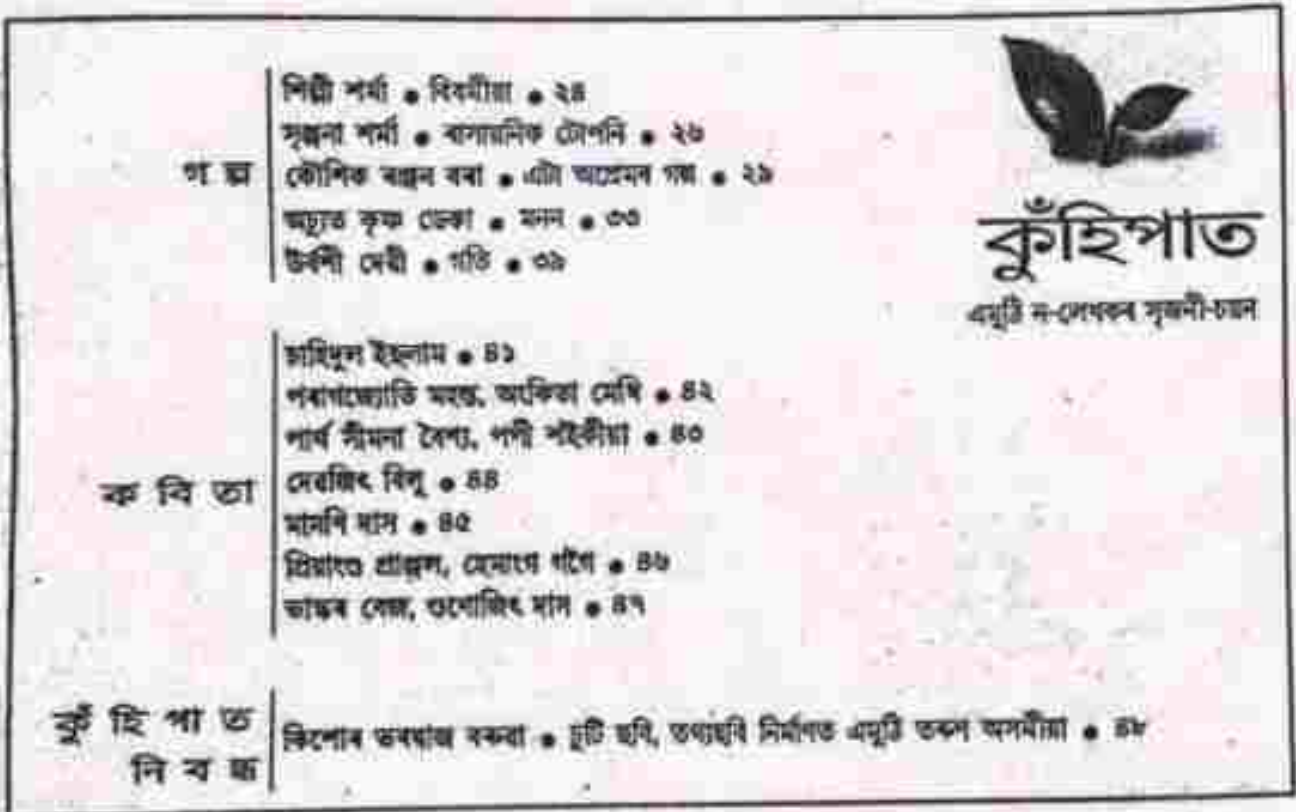 কুঁহিপাত
এমুঠি ন-লেখকৰ সৃজনী-চয়ন
গল্প
শিল্পী শৰ্মা ● বিষমীয়া ● ২৪
সৃঞ্জনা শৰ্মা ● ৰাসায়নিক টোপনি ● ২৬
কৌশিক ৰঞ্জন বৰা ● এটা অপ্ৰেমৰ গল্প ● ২৯
অচ্যুত কৃষ্ণ ডেকা ● মনন ● ৩৩
উৰ্বশী দেৱী ● গতি ● ৩৯
কবিতা
চাহিদুল ইছলাম ● ৪১
পৰাগজ্যোতি মহন্ত, অংকিতা মেধি ● ৪২
পাৰ্থ সীমনা বৈশ্য, পপী শইকীয়া ● ৪৩
দেৱজিৎ ● ৪৪
মামণি দাস ● ৪৫
প্ৰিয়াংশু প্ৰাঞ্জল, হেমাংগ গগৈ ● ৪৬
ভাস্কৰ বেজ, দাস ● ৪৭
কুঁহিপাত
নিবন্ধ
কিশোৰ ভৰদ্বাজ বৰুৱা ● চুটি ছবি, তথ্যছবি নিৰ্মাণত এমুঠি তৰুণ অসমীয়া ● ৪৮